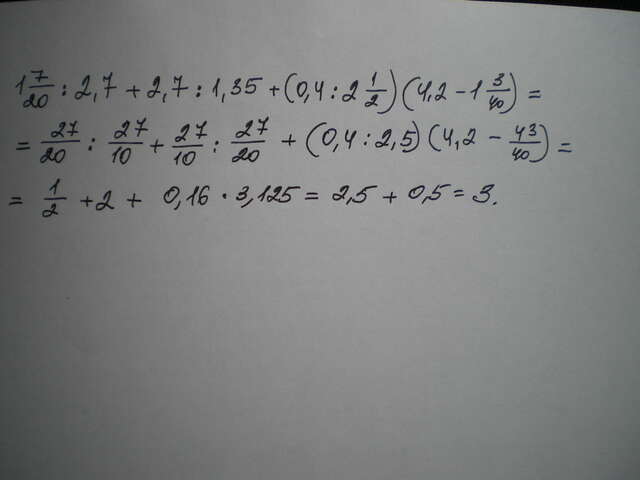 1 7/20 : 2,7 + 2,7 : 1,35 + (0,4 : 2 1/2) (4,2 - 1 3/40) =
= 27/20 : 27/10 + 27/10 : 27/20 + (0,4 : 2,5) (4,2 - 43/40) =
= 1/2 + 2 + 0,16 · 3,125 = 2,5 + 0,5 = 3.